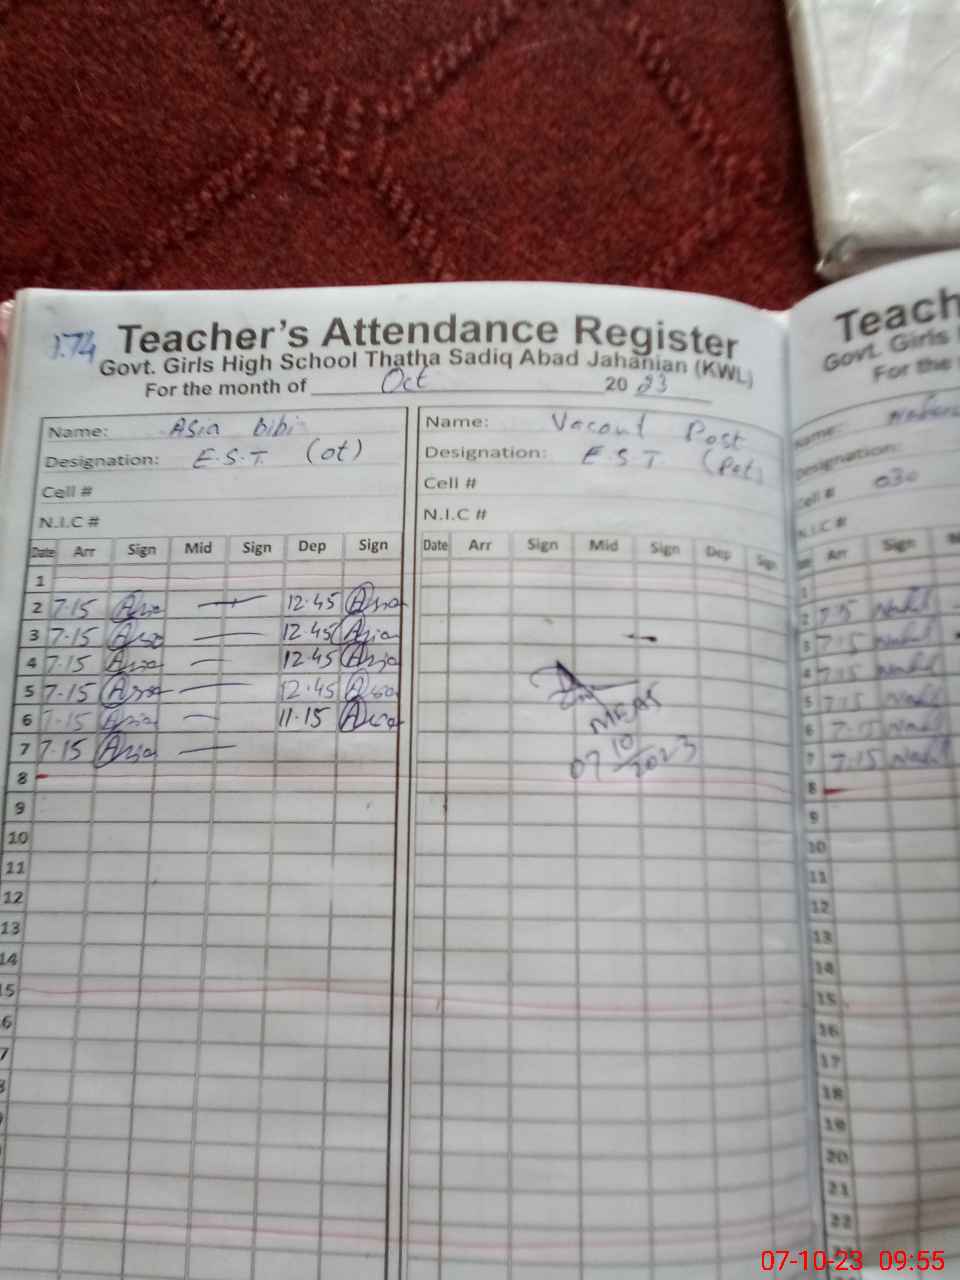 Teacher's Attendance Register
Govt. Girls High School Thatha Sadiq Abad Jahanian (KWL)
For the month of Oct 2023
Name: Asia bibi
Designation: E.S.T. (ot)
Cell #
N.I.C #
Date Arr Sign Mid Sign Dep Sign
1
2 7.15 Asia — 12.45 Asia
3 7.15 Asia — 12.45 Asia
4 7.15 Asia — 12.45 Asia
5 7.15 Asia — 12.45 Asia
6 7.15 Asia — 11.15 Asia
7 7.15 Asia —
8
9
10
11
12
13
14
15
6
7
Name: Vacant Post
Designation: E.S.T.
Cell #
N.I.C #
Date Arr Sign Mid Sign Dep Sign
07/10/2023
Teach
Govt. Girls
For the
Name:
Designation:
Cell # 030
N.I.C #
Arr Sign
1
2 7.15
3 7.15
4 7.15
5 7.15
6 7.15
7 7.15
8
9
10
11
12
13
14
15
16
17
18
19
20
21
22
07-10-23 09:55